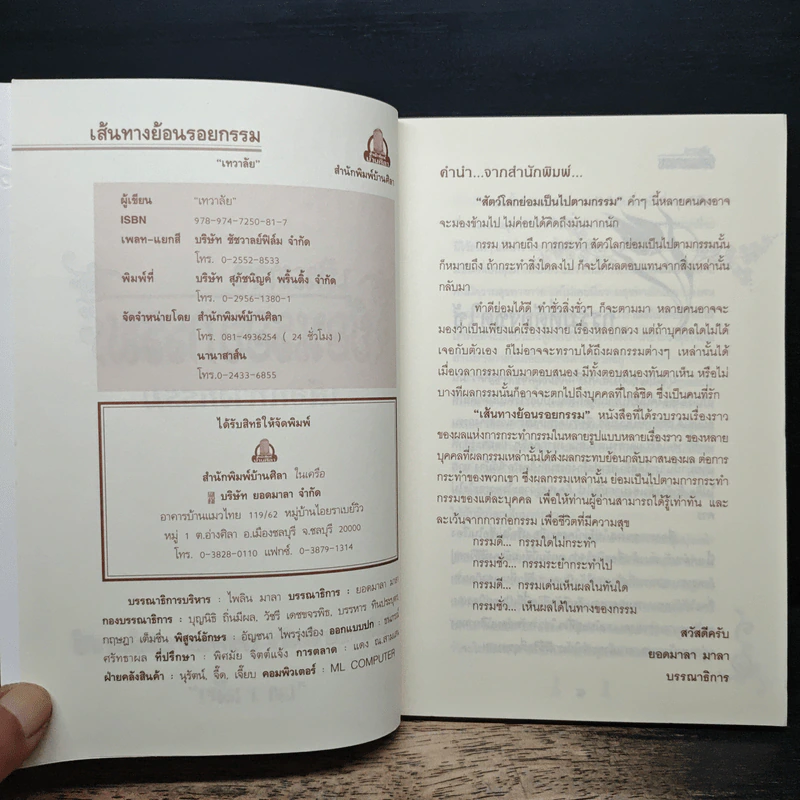 เส้นทางย้อนรอยกรรม
"เทวาลัย"
สำนักพิมพ์บ้านศิลา
ผู้เขียน "เทวาลัย"
ISBN 978-974-7250-81-7
เพลท-แยกสี บริษัท ชัชวาลย์ฟิล์ม จำกัด
โทร. 0-2552-8533
พิมพ์ที่ บริษัท สุภัชนิญค์ พริ้นติ้ง จำกัด
โทร. 0-2956-1380-1
จัดจำหน่ายโดย สำนักพิมพ์บ้านศิลา
โทร. 081-4936254 ( 24 ชั่วโมง )
นานาสาส์น
โทร.0-2433-6855
ได้รับสิทธิให้จัดพิมพ์
สำนักพิมพ์บ้านศิลา ในเครือ
บริษัท ยอดมาลา จำกัด
อาคารบ้านแมวไทย 119/62 หมู่บ้านไอยราเบย์วิว
หมู่ 1 ต.อ่างศิลา อ.เมืองชลบุรี จ.ชลบุรี 20000
โทร. 0-3828-0110 แฟกซ์. 0-3879-1314
บรรณาธิการบริหาร : ไพลิน มาลา บรรณาธิการ : ยอดมาลา มาลา
กองบรรณาธิการ : บุญนิธิ ถิ่นมีผล, วัชรี เดชขจรพิธ, บรรหาร
กฤษฎา เต็มชื่น พิสูจน์อักษร : อัญชนา ไพรรุ่งเรือง ออกแบบปก :
ศรัทธาผล ที่ปรึกษา : พิศมัย จิตต์แจ้ง การตลาด : แดง
ฝ่ายคลังสินค้า : นุรัตน์, จี๊ด, เจี๊ยบ คอมพิวเตอร์ : ML COMPUTER
คำนำ...จากสำนักพิมพ์...
"สัตว์โลกย่อมเป็นไปตามกรรม" คำๆ นี้หลายคนคงอาจ
จะมองข้ามไป ไม่ค่อยได้คิดถึงมันมากนัก
กรรม หมายถึง การกระทำ สัตว์โลกย่อมเป็นไปตามกรรมนั้น
ก็หมายถึง ถ้ากระทำสิ่งใดลงไป ก็จะได้ผลตอบแทนจากสิ่งเหล่านั้น
กลับมา
ทำดีย่อมได้ดี ทำชั่วสิ่งชั่วๆ ก็จะตามมา หลายคนอาจจะ
มองว่าเป็นเพียงแค่เรื่องงมงาย เรื่องหลอกลวง แต่ถ้าบุคคลใดไม่ได้
เจอกับตัวเอง ก็ไม่อาจจะทราบได้ถึงผลกรรมต่างๆ เหล่านั้นได้
เมื่อเวลากรรมกลับมาตอบสนอง มีทั้งตอบสนองทันตาเห็น หรือไม่
บางทีผลกรรมนั้นก็อาจจะตกไปถึงบุคคลที่ใกล้ชิด ซึ่งเป็นคนที่รัก
"เส้นทางย้อนรอยกรรม" หนังสือที่ได้รวบรวมเรื่องราว
ของผลแห่งการกระทำกรรมในหลายรูปแบบหลายเรื่องราว ของหลาย
บุคคลที่ผลกรรมเหล่านั้นได้ส่งผลกระทบย้อนกลับมาสนองผล ต่อการ
กระทำของพวกเขา ซึ่งผลกรรมเหล่านั้น ย่อมเป็นไปตามการกระทำ
กรรมของแต่ละบุคคล เพื่อให้ท่านผู้อ่านสามารถได้รู้เท่าทัน และ
ละเว้นจากการก่อกรรม เพื่อชีวิตที่มีความสุข
กรรมดี... กรรมใดไม่กระทำ
กรรมชั่ว... กรรมระยำกระทำไป
กรรมดี... กรรมเด่นเห็นผลในทันใด
กรรมชั่ว... เห็นผลได้ในทางของกรรม
สวัสดีครับ
ยอดมาลา มาลา
บรรณาธิการ